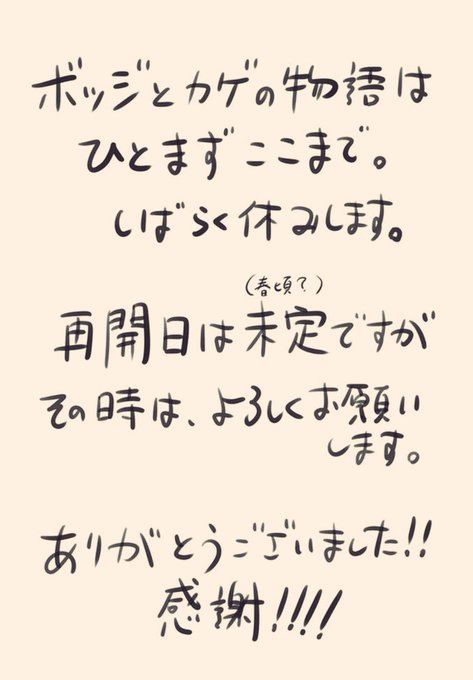 ボッジとカゲの物語は
ひとまずここまで。
しばらく休みします。
(春頃?)
再開日は未定ですが
その時は、よろしくお願い
します。
ありがとうございました!!
感謝!!!!